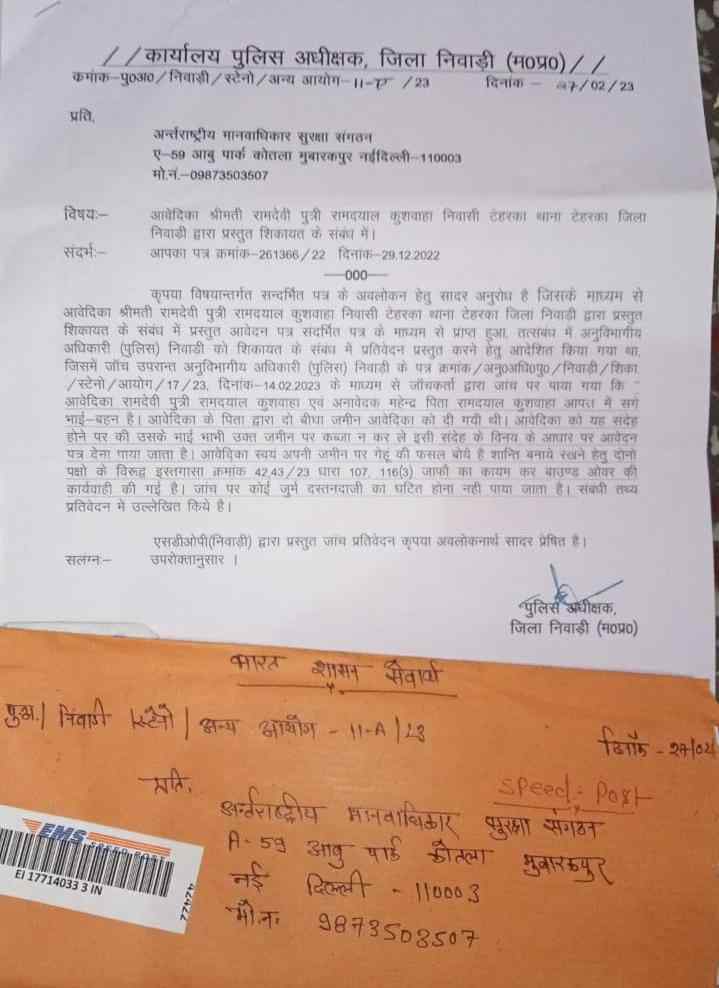 //कार्यालय पुलिस अधीक्षक, जिला निवाड़ी (म०प्र०)//
क्रमांक-पु०अ०/निवाड़ी/स्टेनो/अन्य आयोग-11-ए /23 दिनांक - 27/02/23
प्रति,
अर्न्तराष्ट्रीय मानवाधिकार सुरक्षा संगठन
ए-59 आबु पार्क कोतला मुबारकपुर नईदिल्ली-110003
मो.नं.-09873503507
विषयः- आवेदिका श्रीमती रामदेवी पुत्री रामदयाल कुशवाहा निवासी टेहरका थाना टेहरका जिला
निवाड़ी द्वारा प्रस्तुत शिकायत के संबंध में।
संदर्भः- आपका पत्र क्रमांक-261366/22 दिनांक-29.12.2022
-----000-----
कृपया विषयान्तर्गत सन्दर्भित पत्र के अवलोकन हेतु सादर अनुरोध है जिसके माध्यम से
आवेदिका श्रीमती रामदेवी पुत्री रामदयाल कुशवाहा निवासी टेहरका थाना टेहरका जिला निवाड़ी द्वारा प्रस्तुत
शिकायत के संबंध में प्रस्तुत आवेदन पत्र संदर्भित पत्र के माध्यम से प्राप्त हुआ, तत्संबध में अनुविभागीय
अधिकारी (पुलिस) निवाडी को शिकायत के संबंध में प्रतिवेदन प्रस्तुत करने हेतु आदेशित किया गया था,
जिसमें जॉच उपरान्त अनुविभागीय अधिकारी (पुलिस) निवाड़ी के पत्र क्रमांक/अनु०अधि०पु०/निवाड़ी/शिका.
/स्टेनो/आयोग/17/23, दिनांक-14.02.2023 के माध्यम से जॉचकर्ता द्वारा जांच पर पाया गया कि "
आवेदिका रामदेवी पुत्री रामदयाल कुशवाहा एवं अनावेदक महेन्द्र पिता रामदयाल कुशवाहा आपत में सगे
भाई-बहन है। आवेदिका के पिता द्वारा दो बीघा जमीन आवेदिका को दी गयी थी। आवेदिका को यह संदेह
होने पर की उसके भाई भाभी उक्त जमीन पर कब्जा न कर ले इसी संदेह के विनय के आधार पर आवेदन
पत्र देना पाया जाता है। आवेदिका स्वयं अपनी जमीन पर गेहूं की फसल बोये है शान्ति बनाये रखने हेतु दोनो
पक्षो के विरूद्व इस्तगासा क्रमांक 42,43/23 धारा 107, 116(3) जाफौ का कायम कर बाउण्ड ओवर की
कार्यवाही की गई है। जांच पर कोई जुर्म दस्तनदाजी का घटित होना नही पाया जाता है। संबधी तथ्य
प्रतिवेदन में उल्लेखित किये है।
एसडीओपी(निवाड़ी) द्वारा प्रस्तुत जांच प्रतिवेदन कृपया अवलोकनार्थ सादर प्रेषित है।
सलंग्नः- उपरोक्तानुसार ।
पुलिस अधीक्षक,
जिला निवाड़ी (म०प्र०)
भारत शासन सेवार्थ
पु.अ./ निवाडी/ स्टेनो/ अन्य आयोग - 11-A/23
दिनाँक - 27/02
प्रति,
Speed: Post
अर्न्तराष्ट्रीय मानवाधिकार सुरक्षा संगठन
A-59 आबु पार्क कोतला मुबारकपुर
नई दिल्ली - 110003
मो.न. 9873503507
EMS SPEED POST
EI 17714033 3 IN